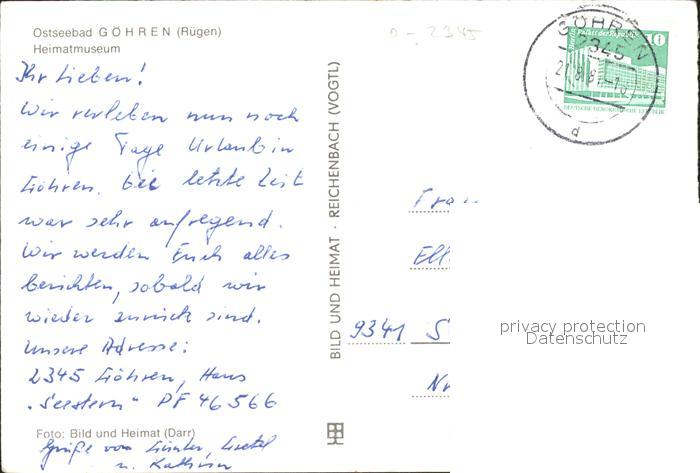 Ostseebad GÖHREN (Rügen)
Heimatmuseum
Ihr Lieben!
Wir verleben nun noch
einige Tage Urlaub in
Göhren. Die letzte Zeit
war sehr aufregend.
Wir werden Euch alles
berichten, sobald wir
wieder zurück sind.
Unsere Adresse:
2345 Göhren, Haus
"Seestern" PF 46566
Foto: Bild und Heimat (Darr)
Grüße von Günter, Gretel
u. Kathrin
BILD UND HEIMAT · REICHENBACH (VOGTL)
2345
GÖHREN
2345
d
Berlin, Palast der Republik
10
DEUTSCHE DEMOKRATISCHE REPUBLIK
Frau
Ell
9341 S
privacy protection
Datenschutz